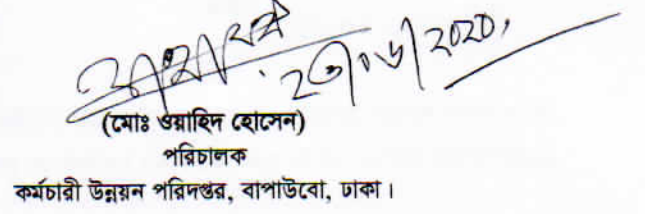 (মোঃ ওয়াহিদ হোসেন)
পরিচালক
কর্মচারী উন্নয়ন পরিদপ্তর, বাপাউবো, ঢাকা।